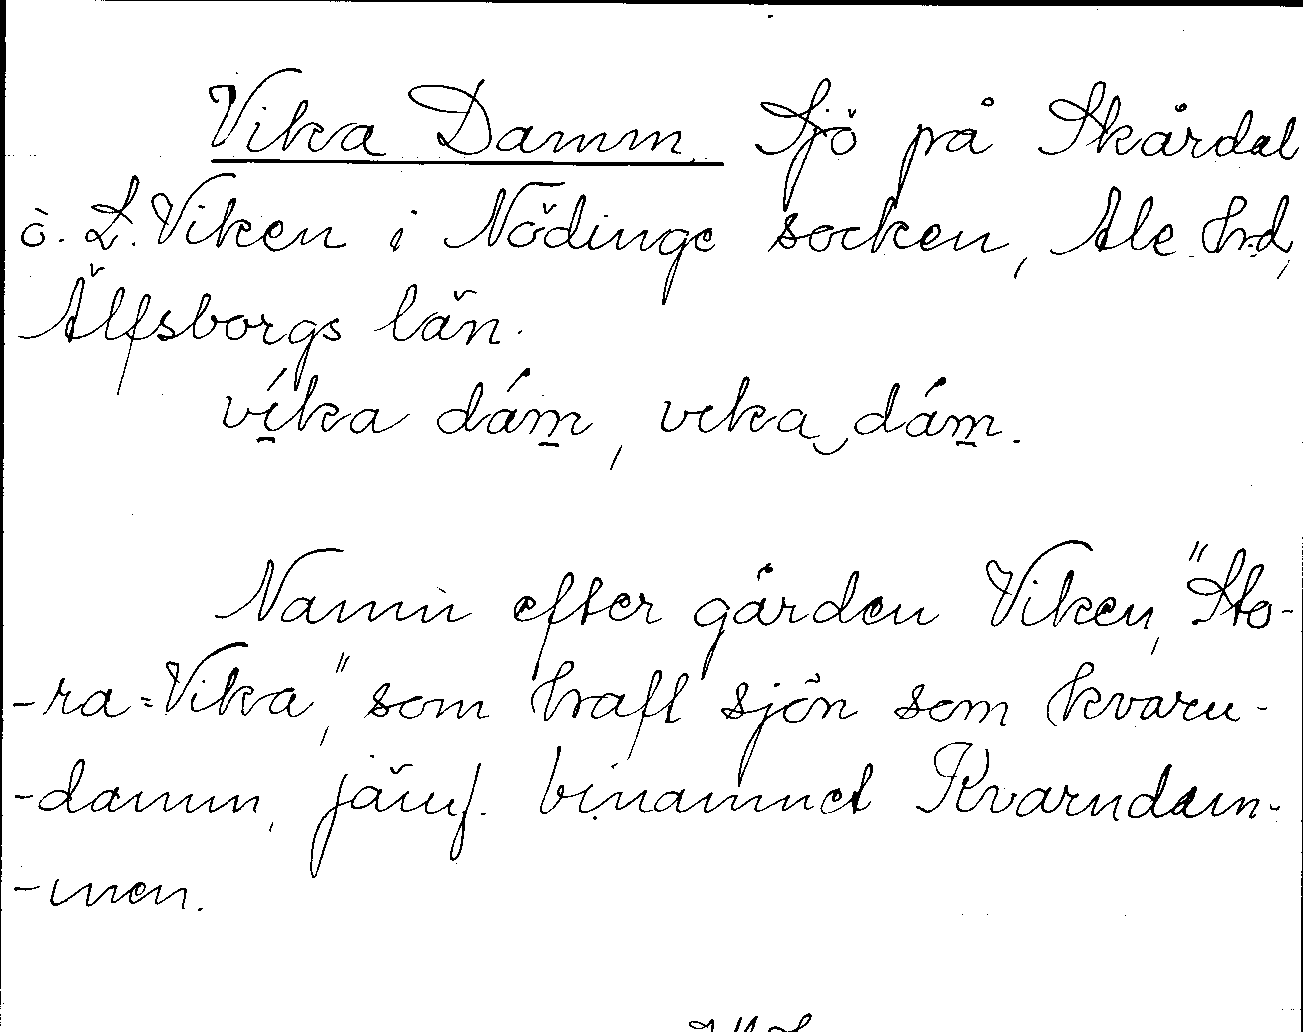 Vika Damm Sjö på Skårdal
o. L. Viken i Nödinge socken, Ale hd,
Älfsborgs län.
víka dám, vika dám.
Namn efter gården Viken, "Sto-
-ra-Vika", som haft sjön som kvarn-
-damm, jämf. binamnet Kvarndam-
-men.